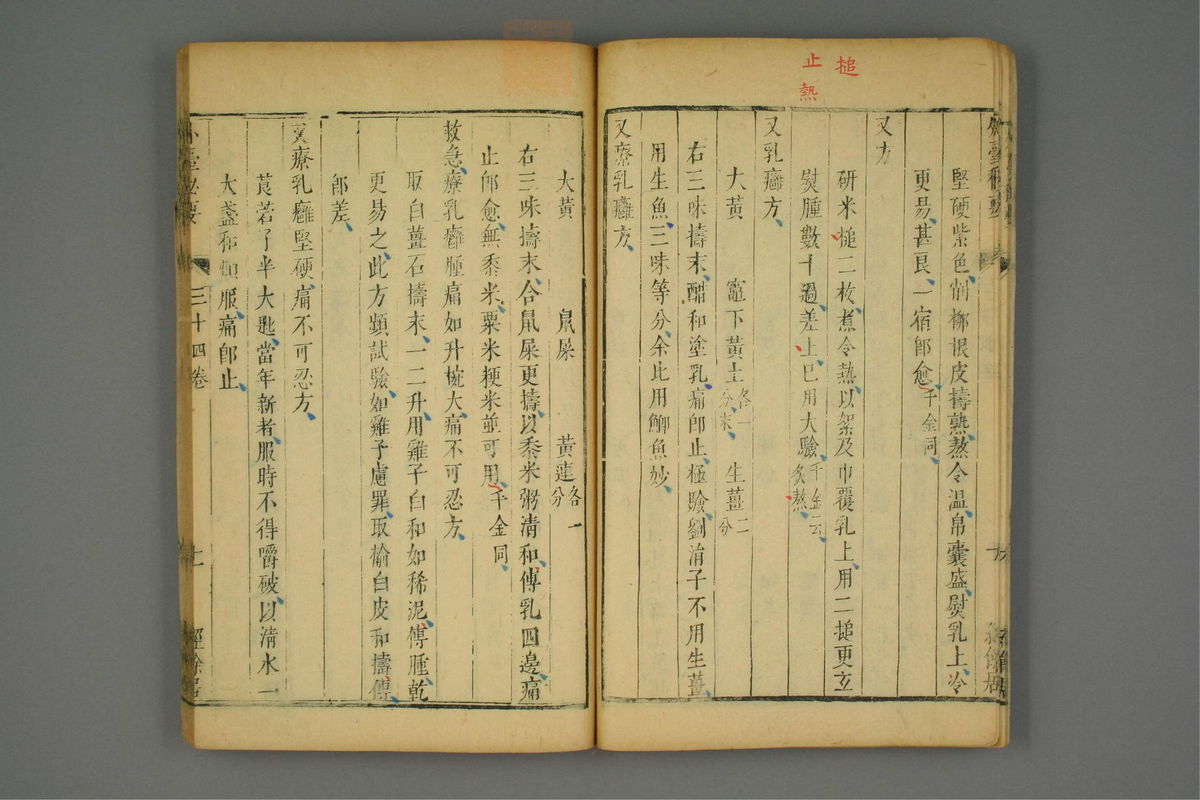 搥
止熱
堅硬紫色削柳根皮擣熟熬令温帛囊盛熨乳上冷
更易甚良一宿即愈千金同
又方
研米搥二枚煮令熱以絮及巾覆乳上用二搥更互
熨腫數十過差上巳用大驗千金云灸熬
又乳癰方
大黄 竈下黄土各一分末 生薑二分
右三味擣末醋和塗乳痛即止極驗劉涓子不用生薑
用生魚三味等分余比用鯽魚妙
又療乳癰方
大黄 鼠屎 黄連各一分
右三味擣末合鼠屎更擣以黍米粥清和傅乳四邊痛
止即愈無黍米粟米粳米並可用千金同
救急療乳癰腫痛如升椀大痛不可忍方
取白薑石擣末一二升用雞子白和如稀泥傅腫乾
更易之此方頻試驗如雞子慮罪取榆白皮和擣傅
即差
又療乳癰堅硬痛不可忍方
莨若子半大匙當年新者服時不得嚼破以清水一
大盞和頓服痛即止
三十四卷